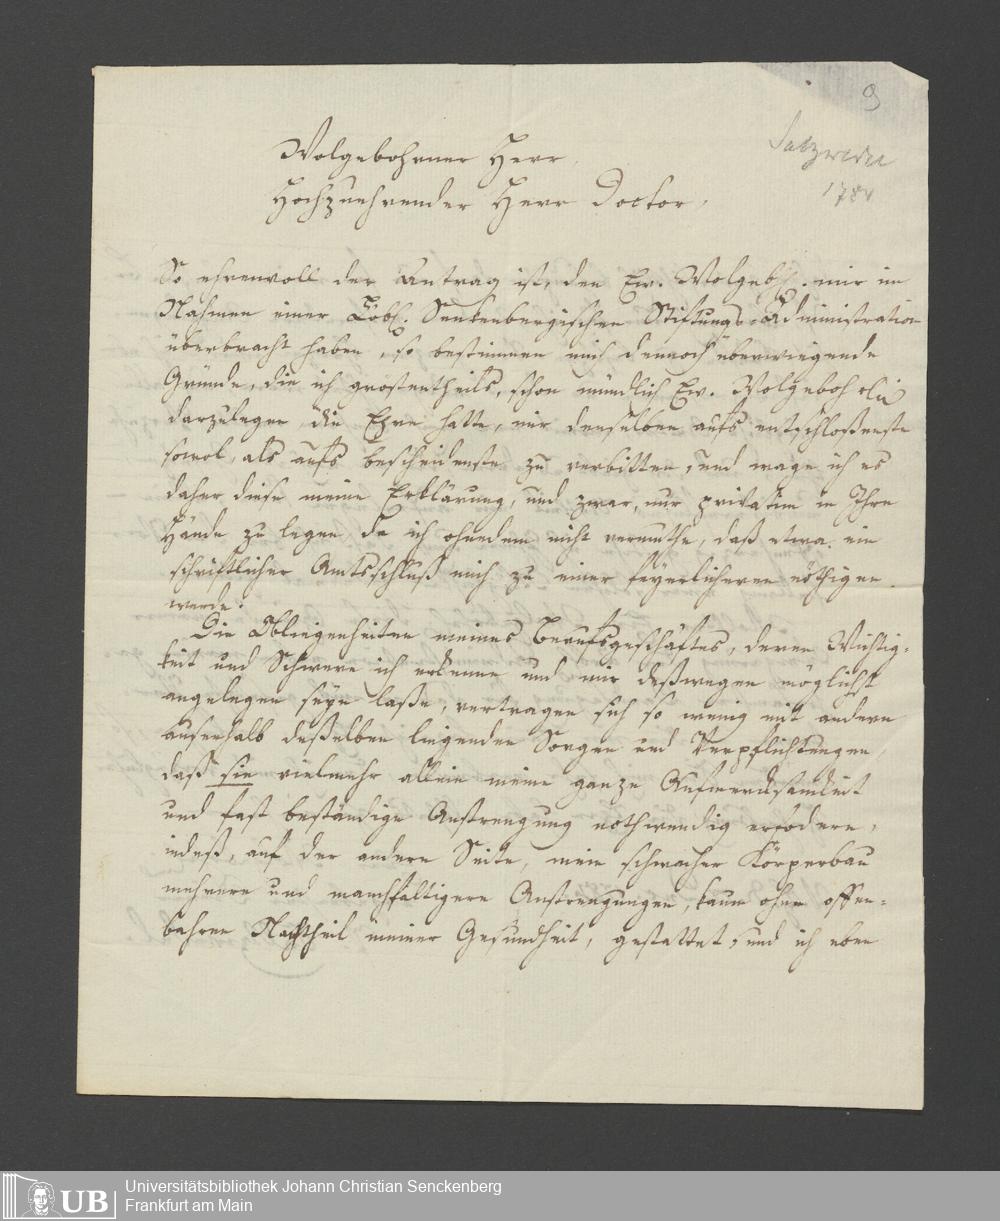 9
Salzwedel
1784
Wolgebohrner Herr,
Hochzuehrender Herr Doctor,
So ehrenvoll der Antrag ist, den Ew. Wolgeb. mir im
Nahmen einer Löbl. Senkenbergischen Stiftungs-Administration
überbracht haben, so bestimmen mich dennoch überwiegende
Gründe, die ich gröstentheils, schon mündlich Ew. Wolgeboh
darzulegen die Ehre hatte, mir denselben aufs entschloßenste
sowol, als aufs bescheidenste zu verbitten, und wage ich es
daher diese meine Erklärung, und zwar, nur privatim in Ihre
Hände zu legen, da ich ohnedem nicht vermuthe, daß etwa ein
schriftlicher Amtsschluß mich zu einer feyerlicheren nöthigen
werde.
Die Obliegenheiten meines Berufsgeschäftes, deren Wichtig-
keit und Schwere ich erkenne und mir deßwegen möglichst
angelegen seyn laße, vertragen sich so wenig mit andern
auserhalb deßelben liegenden Sorgen und Verpflichtungen,
daß sie vielmehr allein meine ganze Aufmercksamkeit
und fast beständige Anstrengung nothwendig erfodern,
indeß, auf der andern Seite, mein schwacher Körperbau
mehrere und manchfaltigere Anstrengungen, kaum ohne offen-
bahren Nachtheil meiner Gesundheit, gestattet, und ich eben
UB
Universitätsbibliothek Johann Christian Senckenberg
Frankfurt am Main